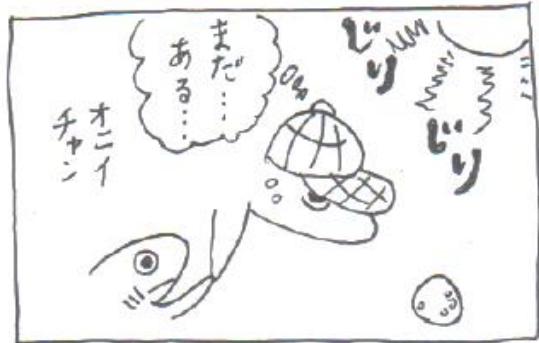 じり
じり
まだ…
ある…
オニイ
チャン